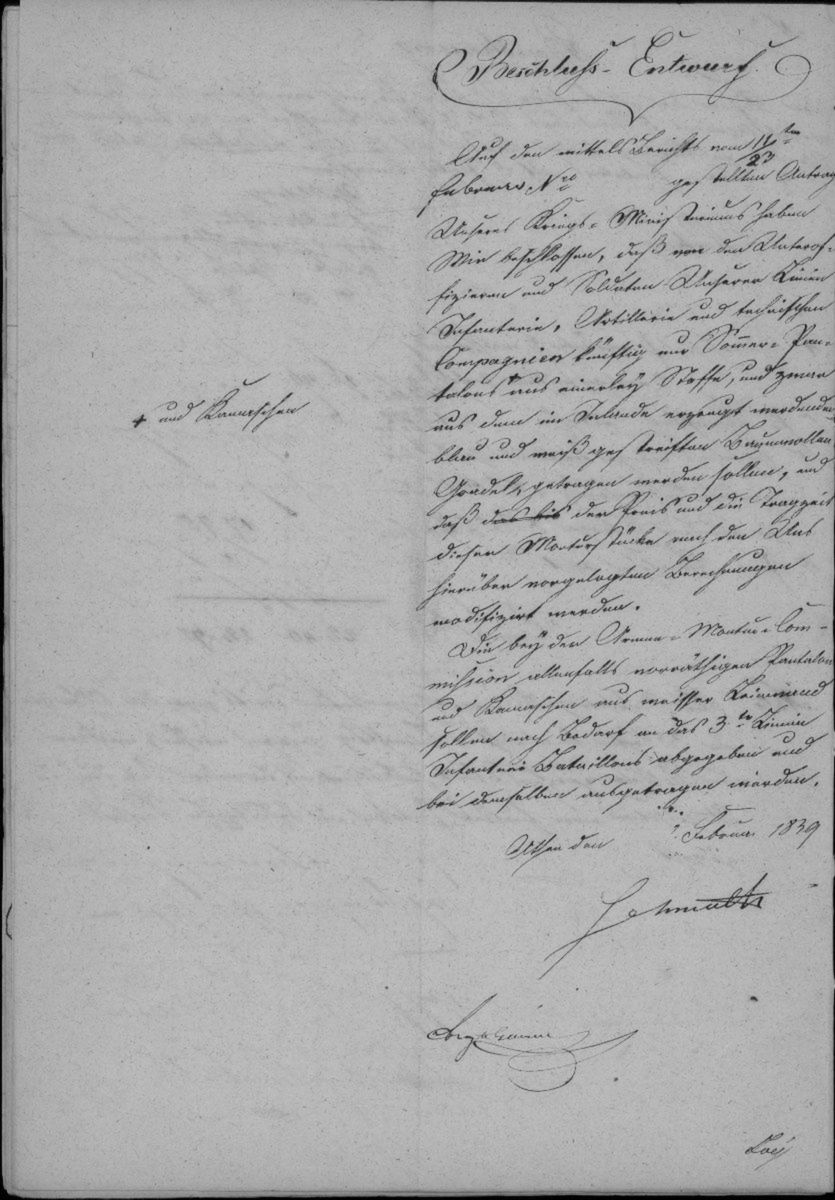 Beschluss-Entwurf.
Auf den mittels Berichts vom 11/23ten
Februar No gestellten Antrag
Unseres Kriegs-Ministeriums haben
Wir beschlossen, daß von den Unterof-
fizieren und Soldaten Unserer Linien
Infanterie, Artillerie und technischen
Compagnien künftig nur Sommer-Pan-
talons + aus einerley Stoffe, und zwar
+ und Kamaschen
aus dem im Inlande erzeugt werdenden
blau und weiß gestreiften Baumwollen
Gradel, getragen werden sollen, und
daß der Preis und die Tragzeit
dieser Monturstücke nach den Uns
hierüber vorgelegten Berechnungen
modifizirt werden.
Die bey der Armee-Montur-Com-
mission allenfalls vorräthigen Pantalon
und Kamaschen aus weisser Leinwand
sollen nach Bedarf an das 3te Linien
Infanterie Bataillons abgegeben und
bei demselben ausgetragen werden.
Athen den Februar 1839
Schmaltz